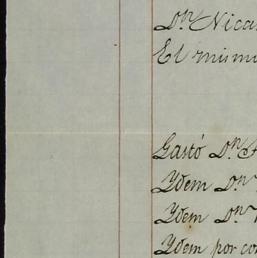 Dn. Nica
El mism
Gastó Dn. F
Ydem Dn.
Ydem Dn.
Ydem por co